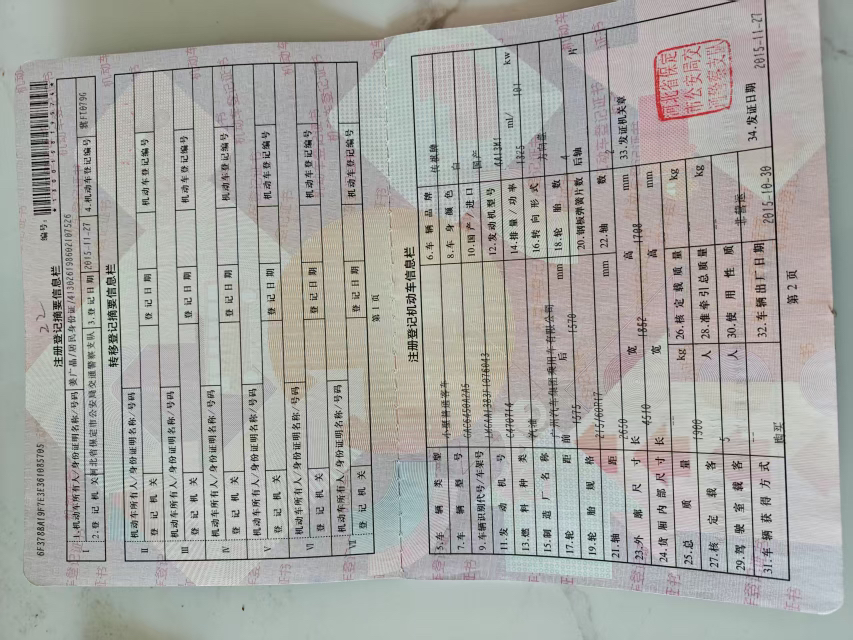 编号：
22
6F378BAE9F7E3E361085T05
注册登记摘要信息栏
Ⅰ 1.机动车所有人/身份证明名称/号码 姜广晶/居民身份证/413026198602107526
2.登记机关 河北省保定市公安局交通警察支队 3.登记日期 2015-11-27 4.机动车登记编号 冀FT079G
转移登记摘要信息栏
Ⅱ 机动车所有人/身份证明名称/号码
登记机关 登记日期 机动车登记编号
Ⅲ 机动车所有人/身份证明名称/号码
登记机关 登记日期 机动车登记编号
Ⅳ 机动车所有人/身份证明名称/号码
登记机关 登记日期 机动车登记编号
Ⅴ 机动车所有人/身份证明名称/号码
登记机关 登记日期 机动车登记编号
Ⅵ 机动车所有人/身份证明名称/号码
登记机关 登记日期 机动车登记编号
Ⅶ 机动车所有人/身份证明名称/号码
登记机关 登记日期 机动车登记编号
第1页
注册登记机动车信息栏
5.车辆类型 小型普通客车 6.车辆品牌 传祺牌
7.车辆型号 GAC6450A2A5 8.车身颜色 白
9.车辆识别代号/车架号 10.国产/进口 国产
11.发动机号 12.发动机型号 4A13M1
13.燃料种类 汽油 14.排量/功率 ml/ 101 kw
15.制造厂名称 广州汽车集团乘用车有限公司 16.转向形式 方向盘
17.轮距 前 1575 后 1570 mm 18.轮胎数 4
19.轮胎规格 215/60R17 20.钢板弹簧片数 后轴 片
21.轴距 2650 mm 22.轴数 2
23.外廓尺寸 长 4510 宽 1852 高 1708 mm 33.发证机关章
24.货厢内部尺寸 长 宽 高 mm
25.总质量 1900 kg 26.核定载质量 kg
27.核定载客 5 人 28.准牵引总质量 kg
29.驾驶室载客 人 30.使用性质 非营运
31.车辆获得方式 购买 32.车辆出厂日期 2015-10-30 34.发证日期 2015-11-27
河北省保定
市公安局交
通警察支队
第2页